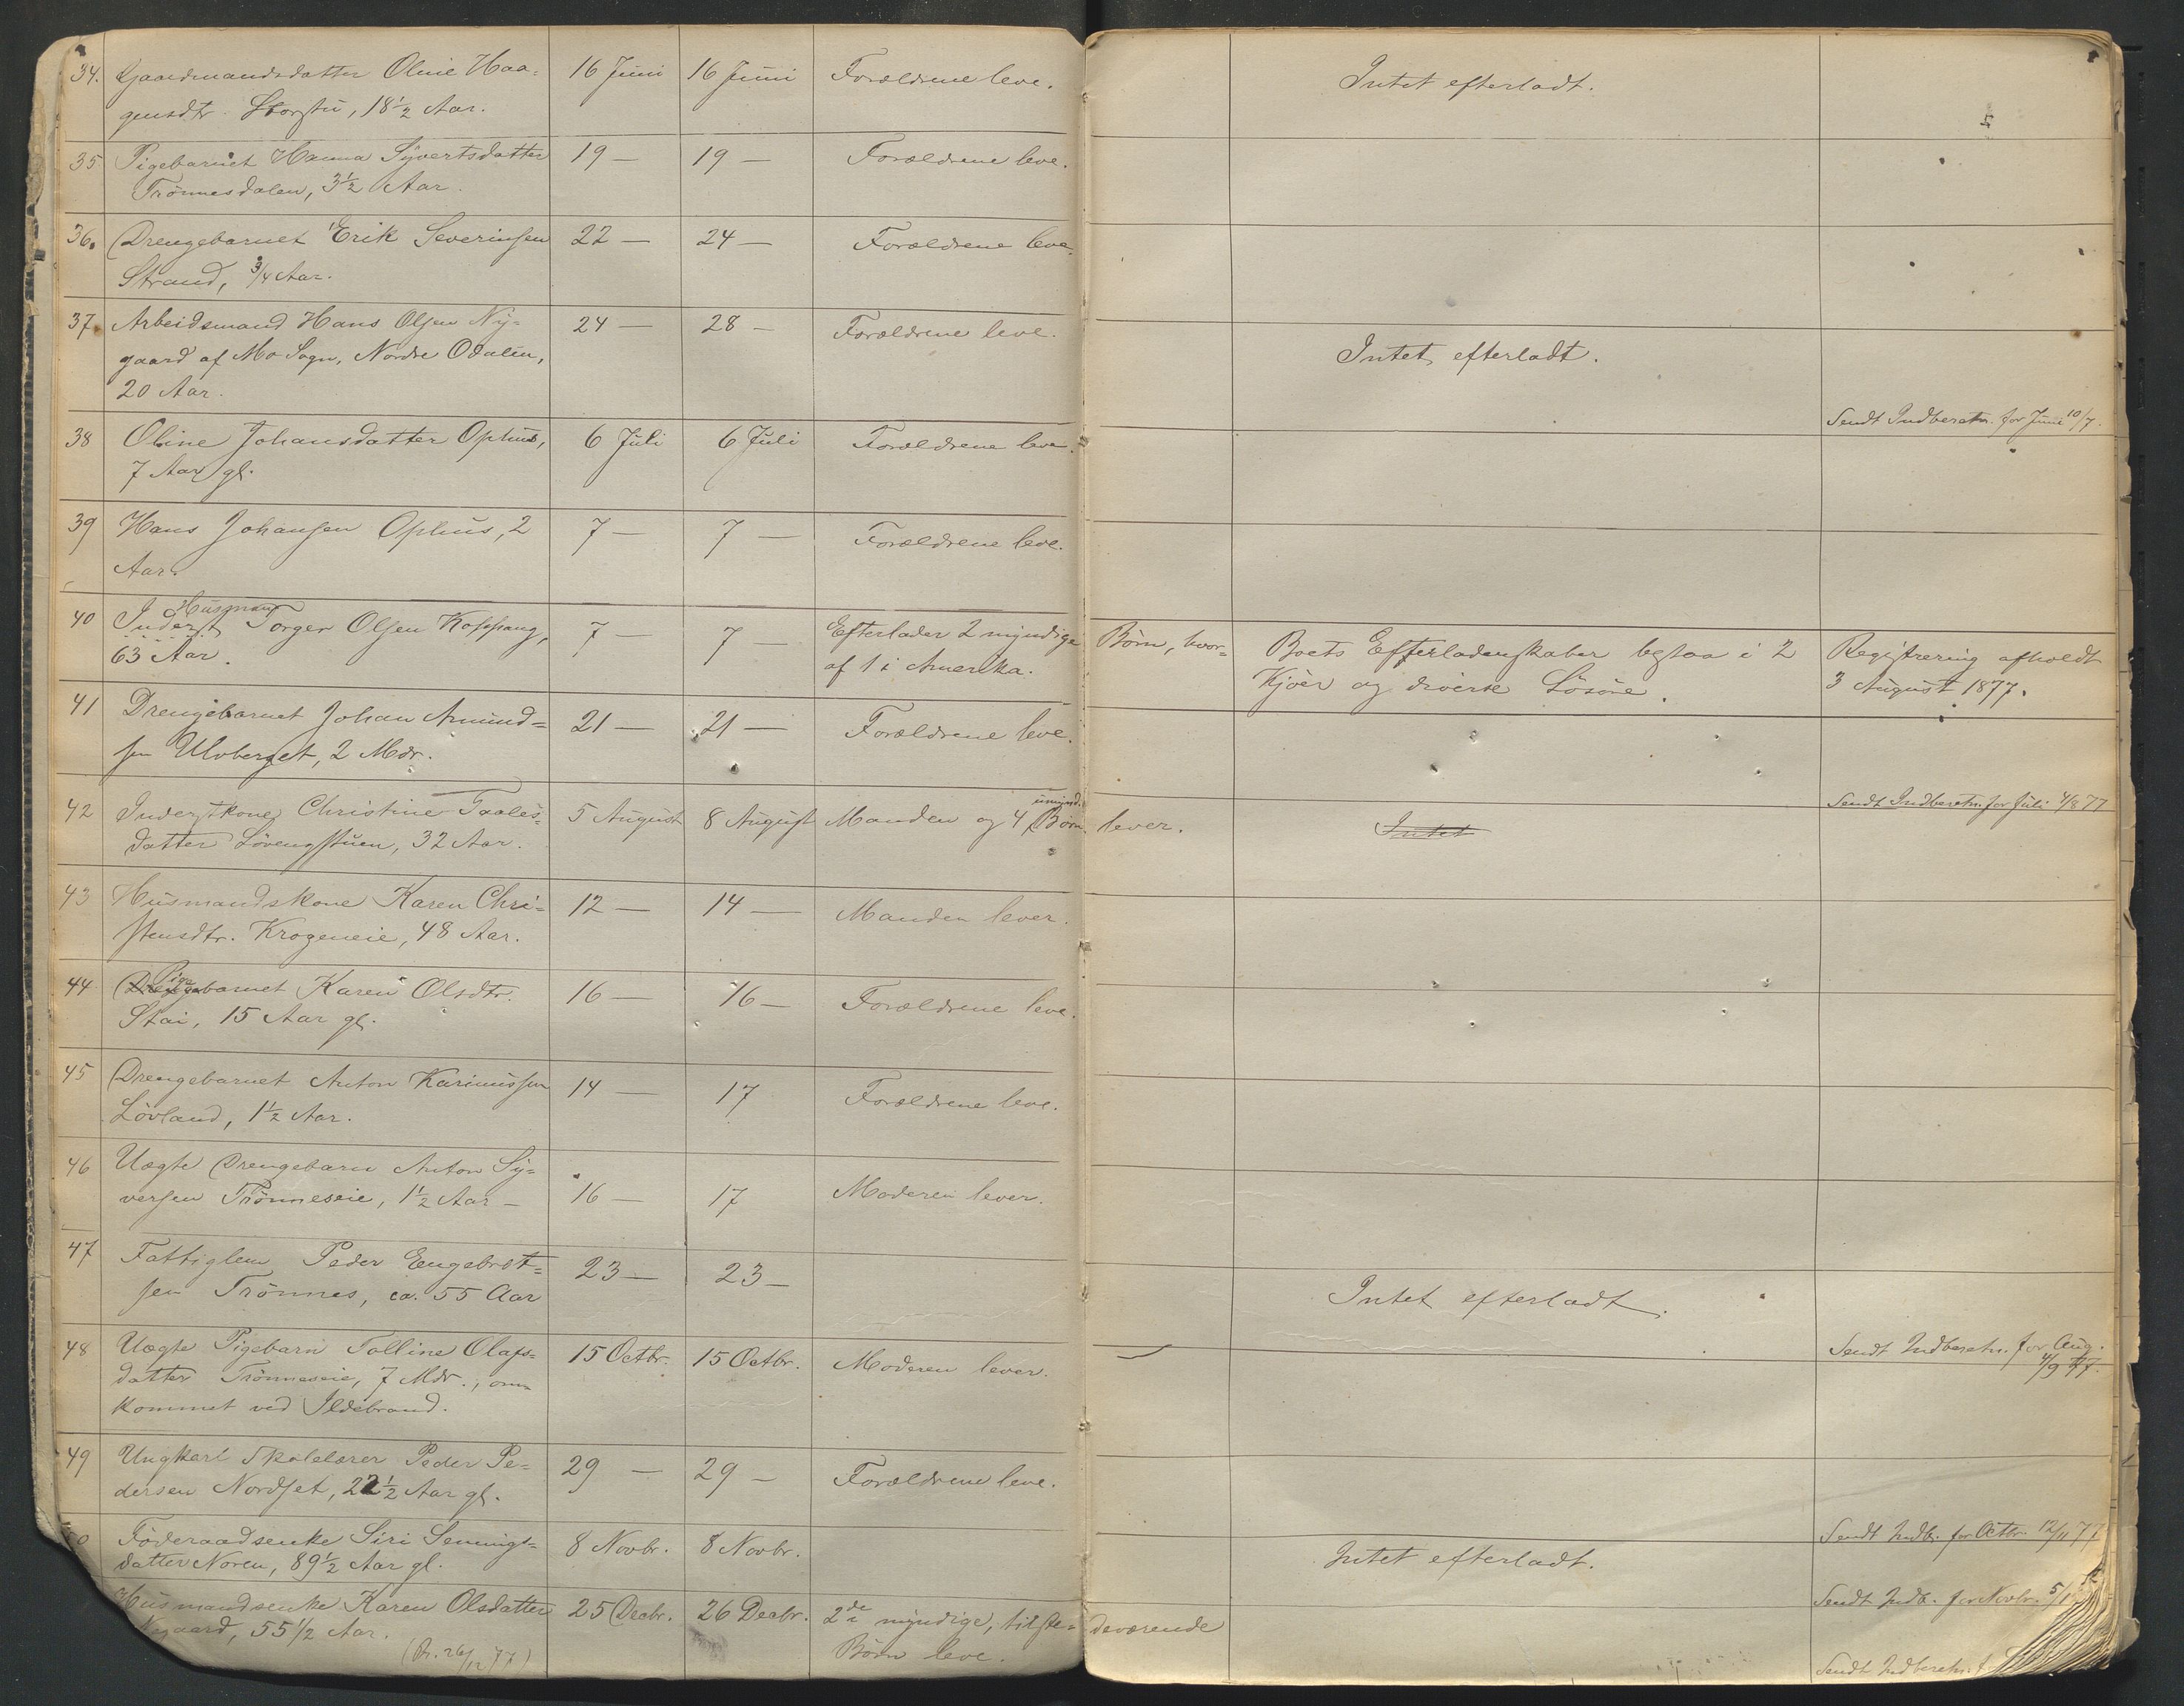 34. Gaardmandsdatter Oline Haa-
gensdtr. Storstu, 18½ Aar.
16 Juni 16 Juni Forældrene leve. Intet efterladt.
35 Pigebarnet Hanna Syvertsdatter
Trönnesdalen, 3½ Aar.
19 — 19 — Forældrene leve.
36. Drengebarnet Erik Severinsen
Strand, ¾ Aar.
22 — 24 — Forældrene leve.
37. Arbeidsmand Hans Olsen Ny-
gaard af Mo Sogn, Nordre Odalen,
20 Aar.
24 — 28 — Forældrene leve. Intet efterladt.
Sendt Indberetn. for Juni 10/7.
38 Oline Johansdatter Ophus,
7 Aar gl.
6 Juli 6 Juli Forældrene leve.
39 Hans Johansen Ophus, 2
Aar.
7 — 7 — Forældrene leve.
Husmand
40 Inderst Torger Olsen Koppang,
63 Aar.
7 — 7 — Efterlader 2 myndige Børn, hvor-
af 1 i Amerika.
Boets Efterladenskaber bestaa i 2
Kjöer og diverse Lösöre.
Registrering afholdt
3 August 1877.
41 Drengebarnet Johan Amund-
sen Ulvberget, 2 Mdr.
21 — 21 — Forældrene leve.
Sendt Indberetn. for Juli 4/8 77
42 Inderstkone Christine Taales-
datter Lövengstuen, 32 Aar.
5 August 8 August Manden og 4 umynd. Børn lever. Intet
43 Husmandskone Karen Chri-
stensdtr. Krogeneie, 48 Aar.
12 — 14 — Manden lever.
Pige
44 Drengebarnet Karen Olsdtr.
Stai, 15 Aar gl.
16 — 16 — Forældrene leve.
45 Drengebarnet Anton Karinussen
Lövland, 1½ Aar.
14 — 17 Forældrene leve.
46 Uægte Drengebarn Anton Sy-
versen Trönneseie, 1½ Aar —
16 — 17 Moderen lever.
47 Fattiglem Peder Engebret-
sen Trönnes, ca. 55 Aar
23 — 23 — Intet efterladt.
Sendt Indberetn. for Aug.
4/9 77.
48 Uægte Pigebarn Tolline Olafs-
datter Trönneseie, 7 Mdr., om-
kommet ved Ildebrand.
15 Octbr. 15 Octbr. Moderen lever. —
49 Ungkarl Skolelærer Peder Pe-
dersen Nordset, 22½ Aar gl.
29 — 29 — Forældrene leve.
Sendt Indb. for Octbr. 12/11 77
50 Föderaadsenke Siri Semmings-
datter Noren, 89½ Aar gl.
8 Novbr. 8 Novbr. Intet efterladt.
Sendt Indb. for Novbr. 5/12
Husmandsenke Karen Olsdatter
Nygaard, 55½ Aar.
(Br. 26/12 77)
25 Decbr. 26 Decbr. 2de myndige, tilste- deværende
Børn leve.
Sendt Indberetn. f